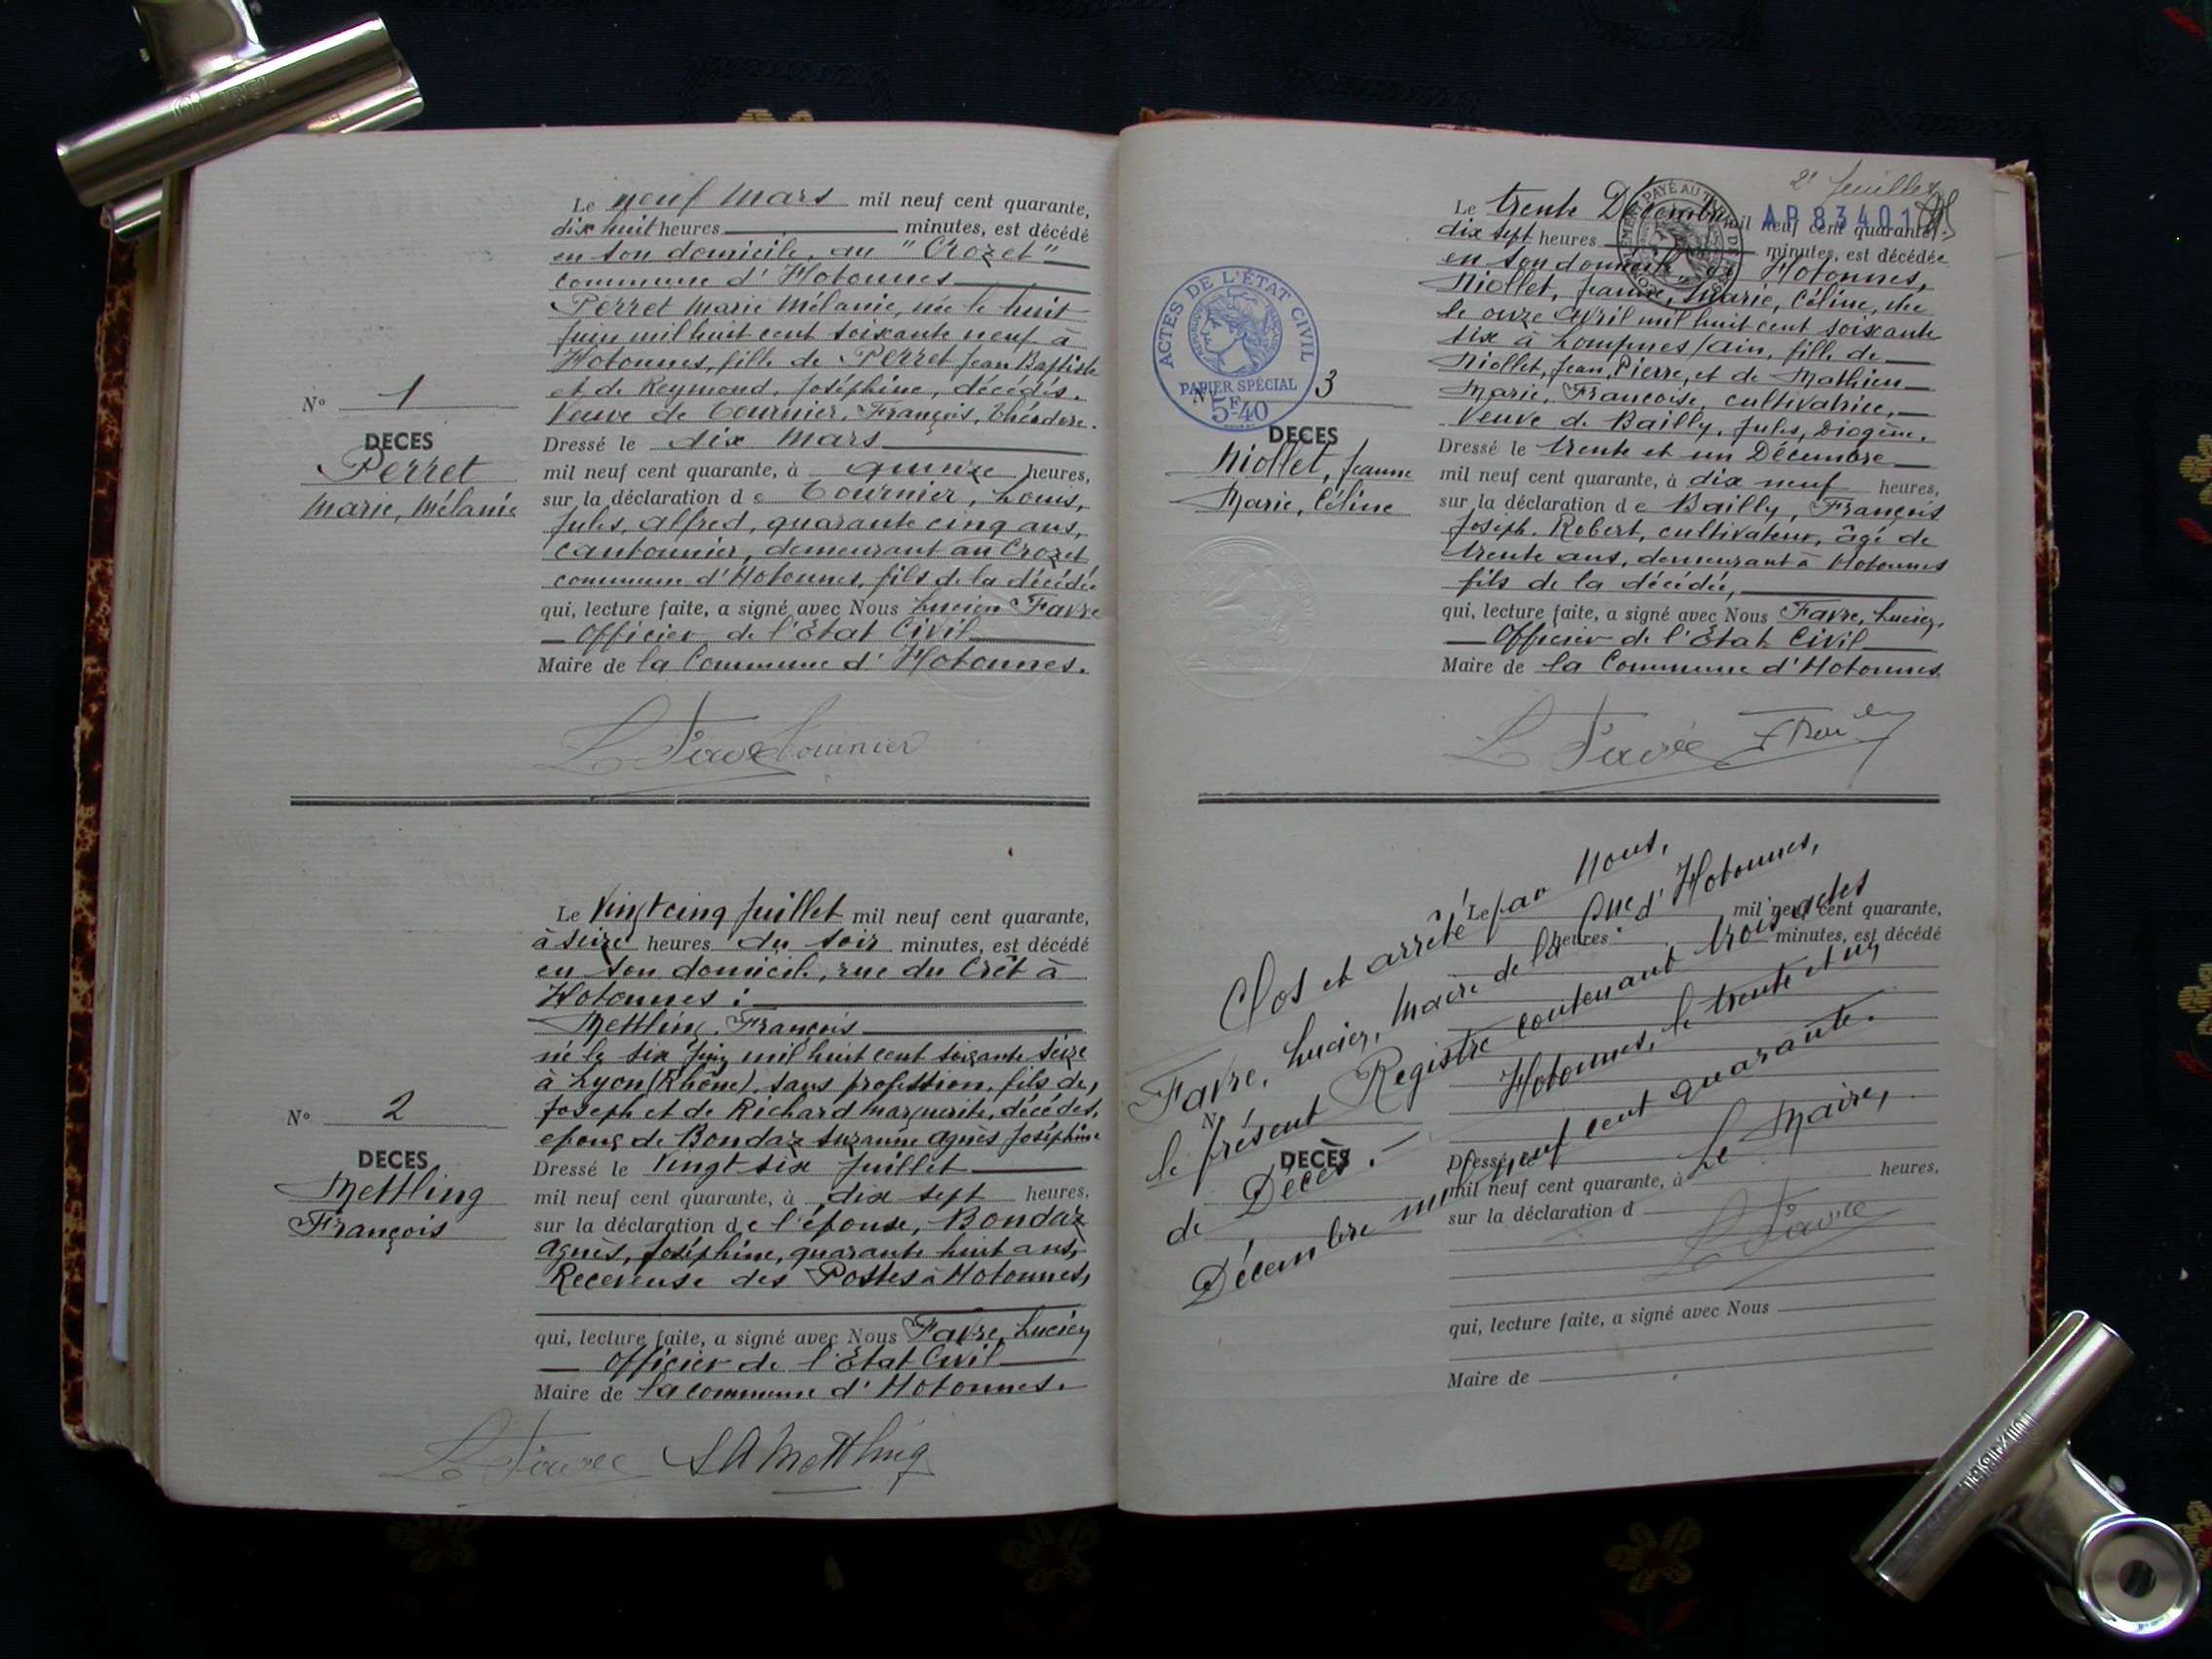 Le neuf Mars mil neuf cent quarante,
dix huit heures minutes, est décédé
en son domicile, au "Crozet"
commune d'Hotonnes
Perret Marie Mélanie, née le huit
Juin mil huit cent soixante neuf à
Hotonnes, fille de Perret Jean Baptiste
et de Reymond, Joséphine, décédés.
Veuve de Tournier, François, Théodore.
N° 1
DECES
Perret
Marie, Mélanie
Dressé le dix Mars
mil neuf cent quarante, à quinze heures,
sur la déclaration d e Tournier, Louis,
Jules, Alfred, quarante cinq ans,
cantonnier, demeurant au Crozet
commune d'Hotonnes, fils de la décédée
qui, lecture faite, a signé avec Nous Lucien Favre
Officier de l'Etat Civil
Maire de la Commune d'Hotonnes.
L Favre Tournier
Le Vingt cinq Juillet mil neuf cent quarante,
à seize heures du soir minutes, est décédé
en son domicile, rue du Crêt à
Hotonnes :
Mettling, François
né le six Juin mil huit cent soixante seize
à Lyon (Rhône), sans profession, fils de,
Joseph et de Richard Marguerite, décédés,
epoux de Bondaz Suzanne Agnès Joséphine
N° 2
DECES
Mettling
François
Dressé le Vingt six Juillet
mil neuf cent quarante, à dix sept heures,
sur la déclaration d e l'épouse, Bondaz
Agnès, Joséphine, quarante huit ans,
Receveuse des Postes à Hotonnes,
qui, lecture faite, a signé avec Nous Favre, Lucien
Officier de l'Etat Civil
Maire de la commune d'Hotonnes.
L Favre S A Mettling
2e feuillet
AP 83401
Le trente Décembre mil neuf cent quarante,
dix sept heures minutes, est décédée
en son domicile à Hotonnes,
Niollet, Jeanne, Marie, Céline, née
le onze Avril mil huit cent soixante
six à Lompnes/Ain, fille de
Niollet, Jean, Pierre, et de Mathieu
Marie, Françoise, cultivatrice,
Veuve de Bailly, Jules, Diogène.
ACTES DE L'ÉTAT CIVIL
PAPIER SPÉCIAL
5F40
N° 3
DECES
Niollet, Jeanne
Marie, Céline
Dressé le trente et un Décembre
mil neuf cent quarante, à dix neuf heures,
sur la déclaration d e Bailly, François
Joseph, Robert, cultivateur, âgé de
trente ans, demeurant à Hotonnes
fils de la décédée,
qui, lecture faite, a signé avec Nous Favre, Lucien,
Officier de l'Etat Civil
Maire de la Commune d'Hotonnes
L Favre
Clos et arrêté par Nous,
Favre, Lucien, Maire de la Cne d'Hotonnes,
le présent Registre contenant trois actes
de Décès. Hotonnes, le trente et un
Décembre mil neuf cent quarante.
Le Maire,
L Favre
Le mil neuf cent quarante,
heures minutes, est décédé
N°
DECÈS
Dressé le
mil neuf cent quarante, à heures,
sur la déclaration d
qui, lecture faite, a signé avec Nous
Maire de